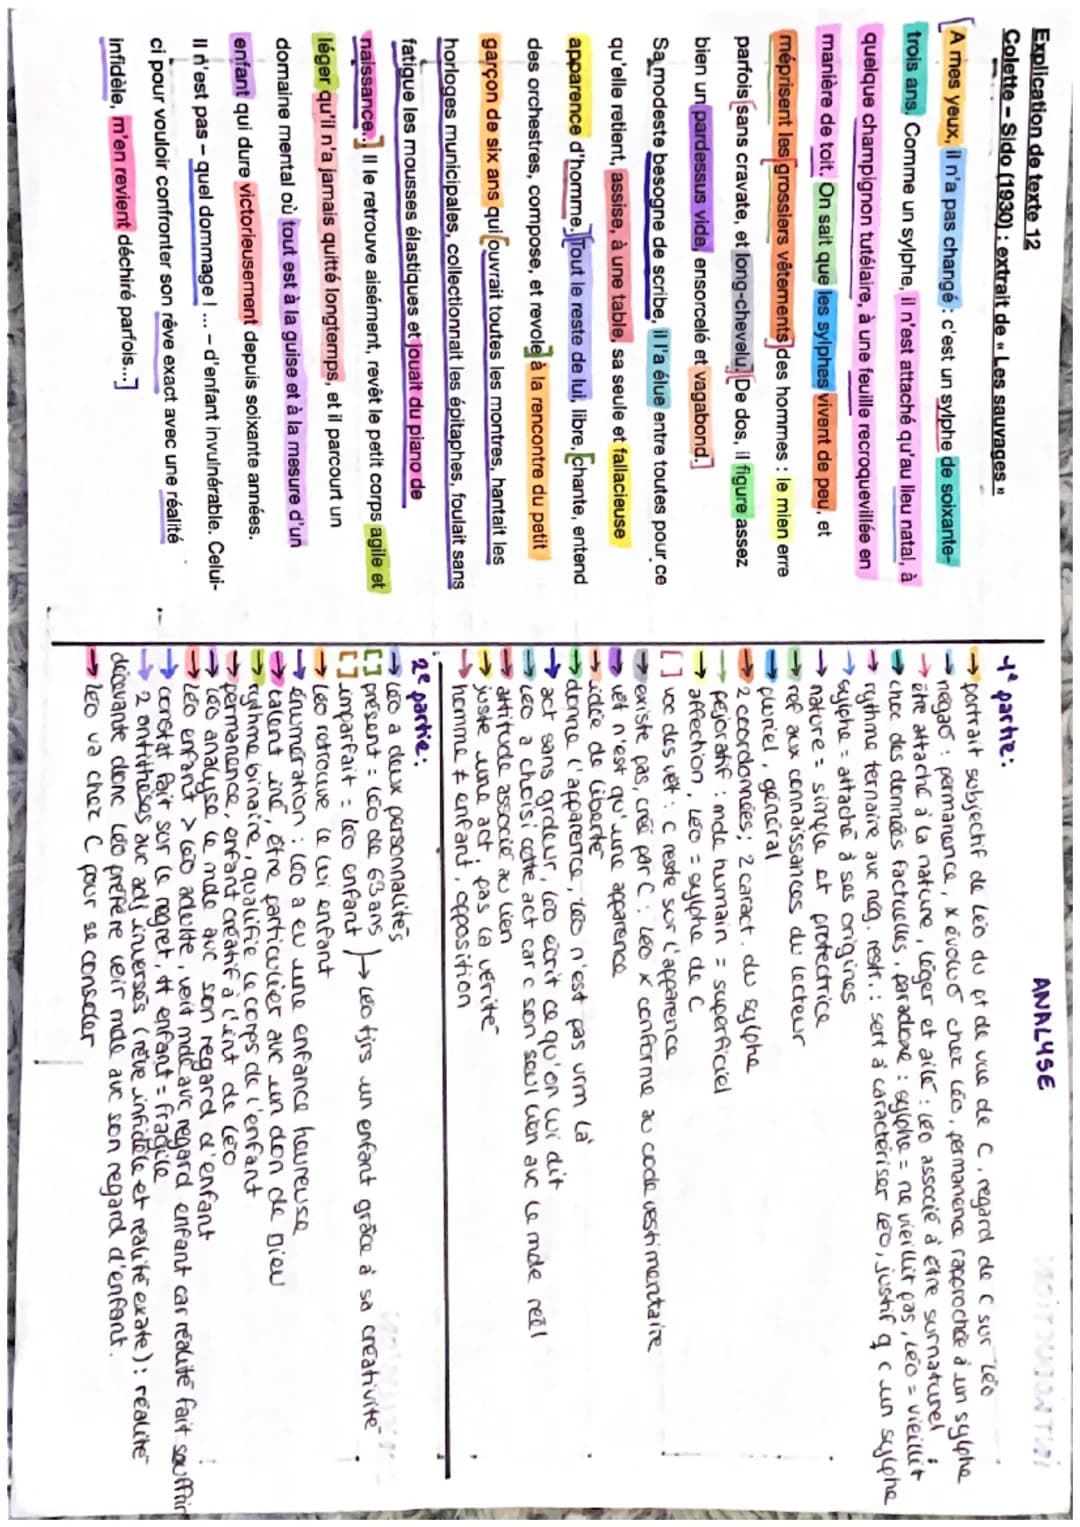 Explication de texte 12
Colette – Sido (1930) : extrait de « Les sauvages »
[A mes yeux, il n'a pas changé : c'est un sylphe de soixante-
trois ans. Comme un sylphe, il n'est attaché qu'au lieu natal, à
quelque champignon tutélaire, à une feuille recroquevillée en
manière de toit. On sait que les sylphes vivent de peu, et
méprisent les [grossiers vêtements] des hommes : le mien erre
parfois [sans cravate, et long-chevelu.] [De dos, il figure assez
bien un pardessus vide, ensorcelé et vagabond.]
Sa modeste besogne de scribe, il l'a élue entre toutes pour ce
qu'elle retient, assise, à une table, sa seule et fallacieuse
apparence d'homme.] [Tout le reste de lui, libre, [chante, entend
des orchestres, compose, et revole] à la rencontre du petit
garçon de six ans qui [ouvrait toutes les montres, hantait les
horloges municipales, collectionnait les épitaphes, foulait sans
fatigue les mousses élastiques et jouait du piano de
naissance..] Il le retrouve aisément, revêt le petit corps agile et
léger qu'il n'a jamais quitté longtemps, et il parcourt un
domaine mental où tout est à la guise et à la mesure d'un
enfant qui dure victorieusement depuis soixante années.
Il n'est pas – quel dommage !... – d'enfant invulnérable. Celui-
ci pour vouloir confronter son rêve exact avec une réalité
infidèle, m'en revient déchiré parfois...]
ANALYSE
1e partie :
→ portrait subjectif de Léo du pt de vue de C, regard de C sur Léo
→ négat° : permanence, x évoluo chez Léo, permanence rapprochée à un sylphe
→ être attaché à la nature, léger et ailé : Léo associé à être surnaturel
→ choc des données factuelles, paradoxe : sylphe = ne vieillit pas, Léo = vieillit
→ rythme ternaire avc nég. restr. : sert à caractériser Léo, justif q c un sylphe
→ sylphe = attaché à ses origines
→ nature = simple et protectrice
→ ref aux connaissances du lecteur
→ pluriel, général
→ 2 coordonnées ; 2 caract. du sylphe
→ péjoratif : mde humain = superficiel
→ affection, Léo = sylphe de C
[ ] voc des vêt : C reste sur l'apparence
→ existe pas, créé par C : Léo x conforme au code vestimentaire
→ vêt n'est qu'une apparence
→ idée de liberté
→ donne l'apparence, Léo n'est pas vrm là
→ act sans grdeur, Léo écrit ce qu'on lui dit
→ Léo a choisi cette act car c son seul lien avc le mde réel
→ attitude associé au lien
→ juste une act, pas la vérité
→ homme ≠ enfant, opposition
2e partie :
→ Léo a deux personnalités
[ ] présent : Léo de 63 ans
[ ] imparfait : Léo enfant
) → Léo tjrs un enfant grâce à sa créativité
→ Léo retrouve le lui enfant
→ énumération : Léo a eu une enfance heureuse
→ talent inné, être particulier avc un don de Dieu
→ rythme binaire, qualifie le corps de l'enfant
→ permanence, enfant créatif à l'int de Léo
→ Léo analyse le mde avc son regard d'enfant
→ Léo enfant > Léo adulte, voit mde avc regard enfant car réalité fait souffrir
→ constat fait sur le regret, tt enfant = fragile
→ 2 antithèses avc adj inversés (rêve infidèle et réalité exate) : réalité
décevante donc Léo préfère voir mde avc son regard d'enfant.
→ Léo va chez C pour se consoler